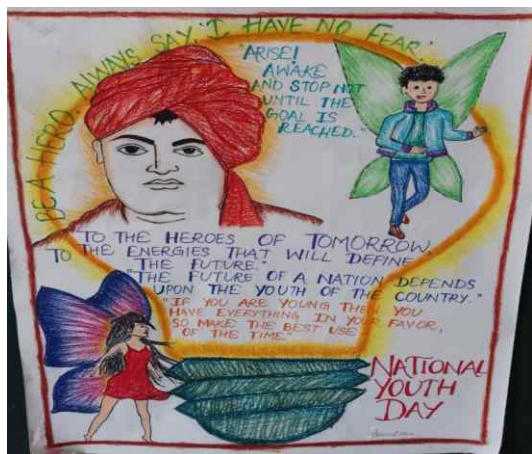 BE A HERO. ALWAYS SAY, "I HAVE NO FEAR"
"ARISE!
AWAKE
AND STOP NOT
UNTIL THE
GOAL IS
REACHED."
TO THE HEROES OF TOMORROW,
TO THE ENERGIES THAT WILL DEFINE
THE FUTURE."
"THE FUTURE OF A NATION DEPENDS
UPON THE YOUTH OF THE COUNTRY."
"IF YOU ARE YOUNG THEN YOU
HAVE EVERYTHING IN YOUR FAVOR,
SO MAKE THE BEST USE
OF THE TIME."
NATIONAL
YOUTH
DAY